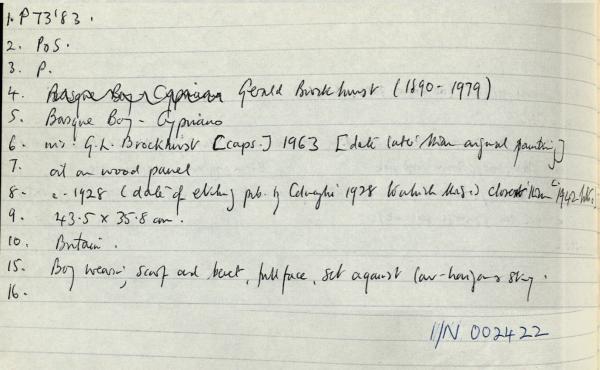 1. P 73'83.
2. PoS.
3. P.
4. Basque Boy Cypriano Gerald Brockhurst (1890-1979)
5. Basque Boy - Cypriano
6. ins: G.L. Brockhurst [caps.] 1963 [date later than original painting]
7. oil on wood panel
8. c. 1928 (date of etching pub. by Colnaghi 1928 to which this is closer than
9. 43.5 x 35.8 cm.
10. Britain.
15. Boy wearing scarf and beret, full face, set against low-horizon sky.
16.
I/N 002422